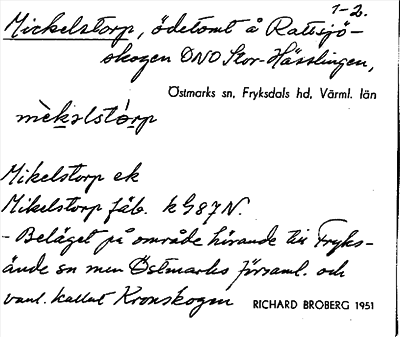 1-2.
Mickelstorp, ödetomt å Rattsjö-
skogen ONO Stor-Hässlingen,
Östmarks sn, Fryksdals hd, Värml. län
mèkəlstò́rp
Mikelstorp ek
Mikelstorp fäb. k G87N.
- Beläget på område hörande till Fryks-
ände sn men Östmarks församl. och
vanl. kallat Kronskogen
RICHARD BROBERG 1951